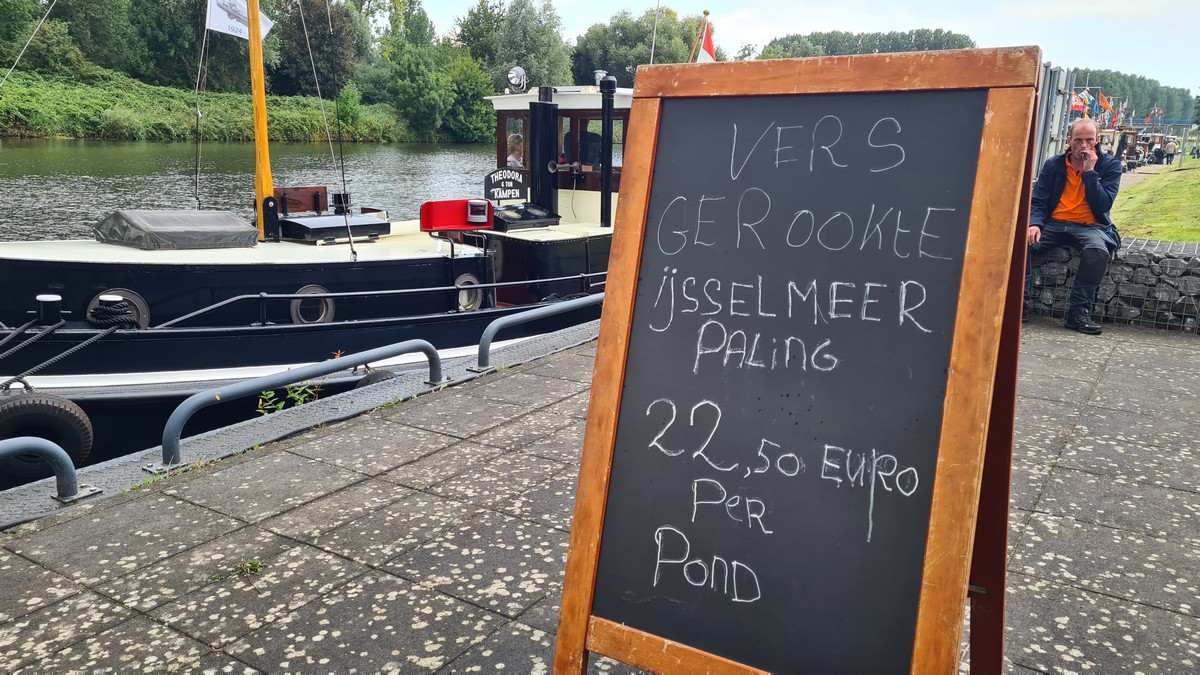 1924
THEODORA
G TEN
KAMPEN
VERS
GEROOKTE
IJSSELMEER
PALING
22,50 EURO
Per
POND